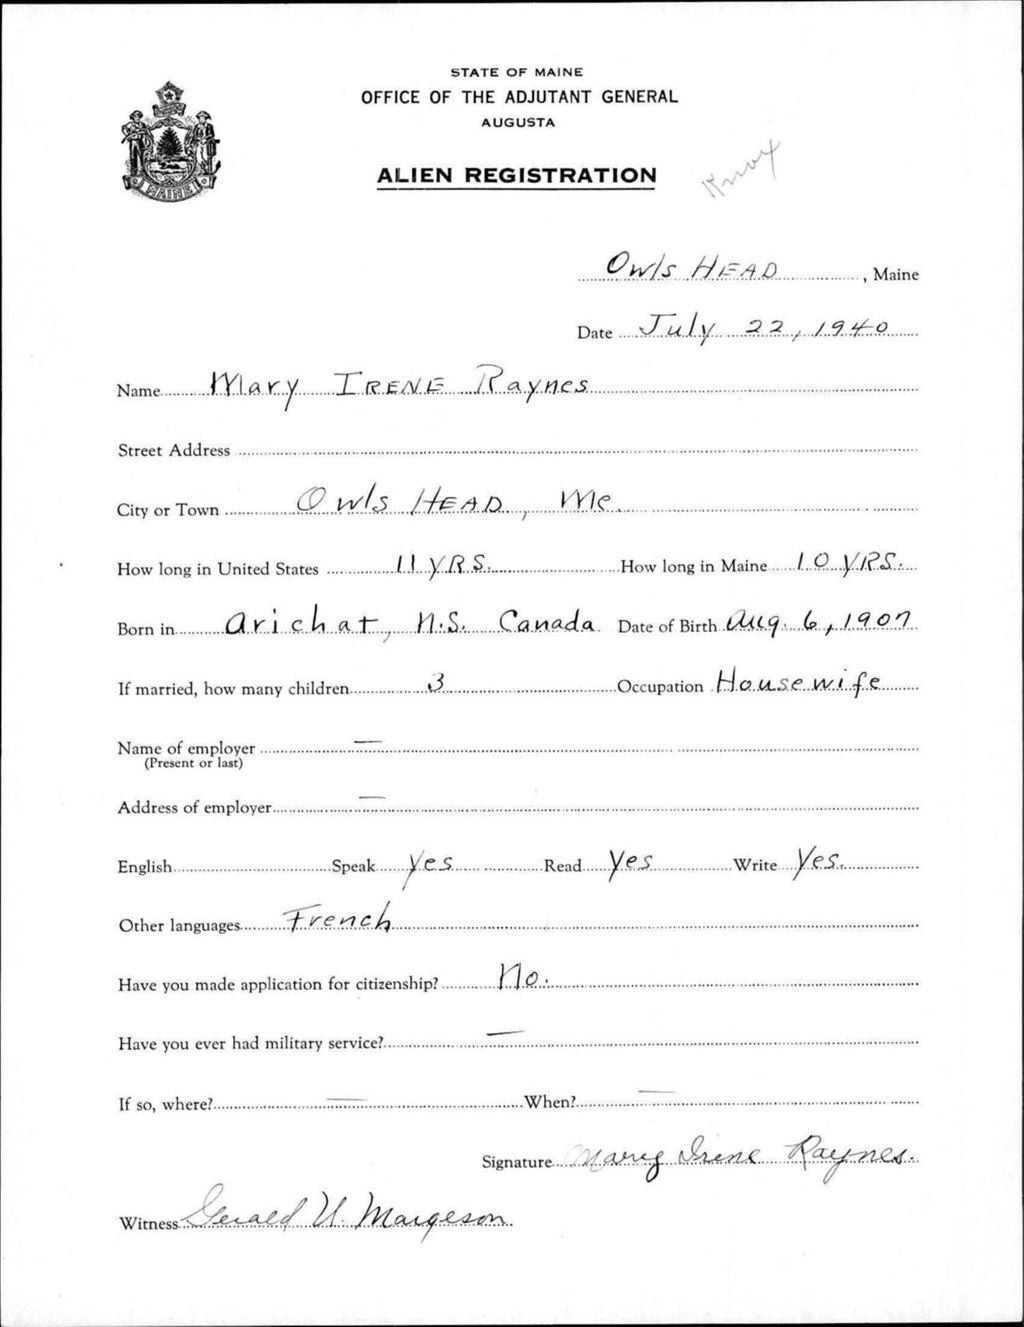 STATE OF MAINE
OFFICE OF THE ADJUTANT GENERAL
AUGUSTA
ALIEN REGISTRATION
Knox
MAINE
Owls HEAD, Maine
Date July 22, 1940
Name Mary IRENE Raynes
Street Address
City or Town Owls HEAD, Me.
How long in United States 11 YRS. How long in Maine 10 YRS.
Born in Arichat, N.S. Canada Date of Birth Aug. 6, 1907
If married, how many children 3 Occupation Housewife
Name of employer —
(Present or last)
Address of employer —
English Speak Yes Read Yes Write Yes.
Other languages French
Have you made application for citizenship? No.
Have you ever had military service? —
If so, where? — When? —
Signature Mary Irene Raynes.
Witness Gerald U. Margeson